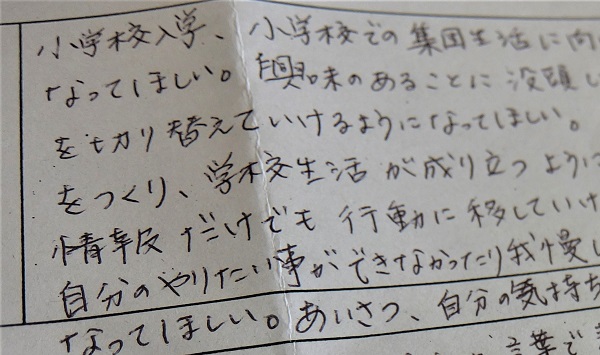 小学校入学、小学校での集団生活に向
なってほしい。興味のあることに没頭し
を切り替えていけるようになってほしい。
をつくり、学校生活が成り立つように
情報だけでも行動に移していけ
自分のやりたい事ができなかったり我慢し
なってほしい。あいさつ、自分の気持ち
言葉で